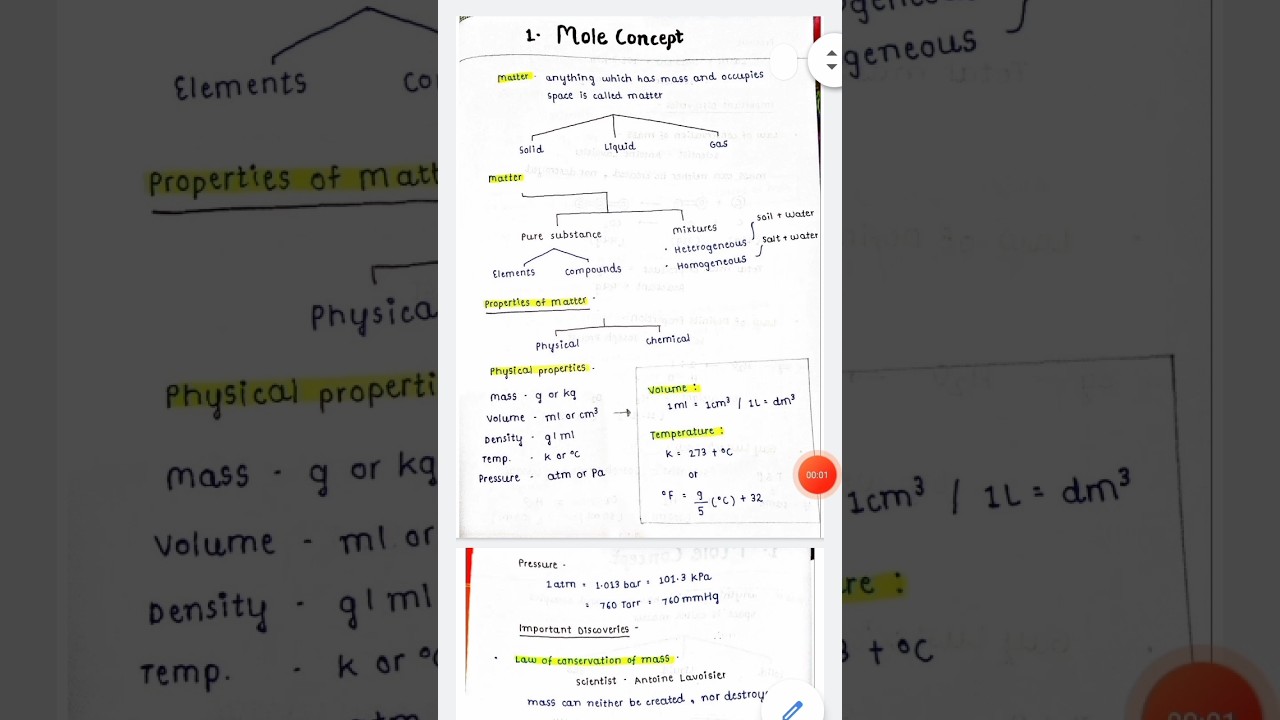 1. Mole Concept
Matter - anything which has mass and occupies
space is called matter
Solid Liquid Gas
Matter
Pure substance mixtures
Elements Compounds
· Heterogeneous soil + water
· Homogeneous salt + water
Properties of Matter -
Physical chemical
Physical properties -
mass - g or kg
Volume - ml or cm³
Density - g/ml
Temp. - K or °C
Pressure - atm or Pa
Volume :
1ml = 1cm³ / 1L = dm³
Temperature :
K = 273 + °C
or
°F = 9/5 (°C) + 32
00:01
Pressure -
1atm = 1.013 bar = 101.3 kPa
= 760 Torr = 760 mmHg
Important Discoveries -
· Law of conservation of mass -
Scientist - Antoine Lavoisier
mass can neither be created, nor destroy
Elements
Co
Properties of Matt
Physica
Physical properti
mass - g or kg
Volume - ml or
Density - g/ml
Temp. - K or °
geneous
1cm³ / 1L = dm³
re :
3 + °C
00:01